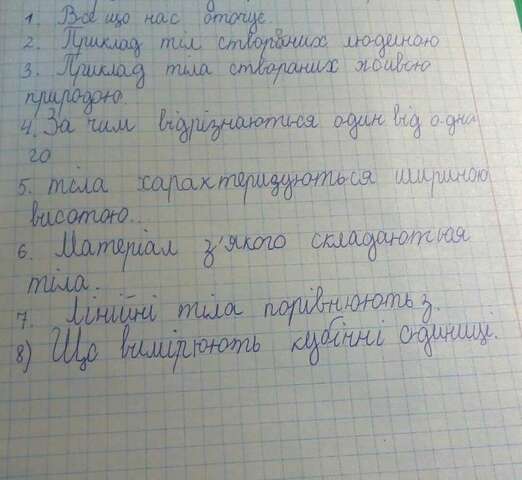 1. Все що нас оточує.
2. Приклад тіл створаних людиною
3. Приклад тіла створаних живою
природою.
4. За чим відрізнаються один від одно
го
5. тіла характеризуються шириною
висотою..
6. Матеріал з'якого складаються
тіла.
7. Лінійні тіла порівнюють з.
8) Що вимірюють кубічні одиниці.